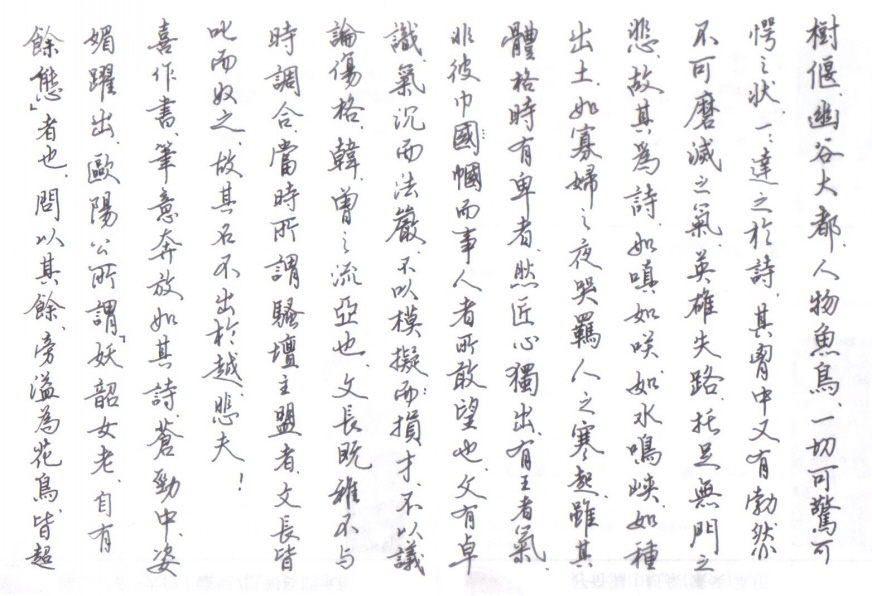 樹偃、幽谷大都、人物魚鳥、一切可驚可
愕之狀、一一達之於詩。其胷中又有勃然
不可磨滅之氣、英雄失路、托足無門之
悲、故其為詩、如嗔如咲、如水鳴峽、如種
出土、如寡婦之夜哭、羈人之寒起。雖其
體格時有卑者、然匠心獨出、有王者氣、
非彼巾國幗而事人者所敢望也。文有卓
識、氣沉而法嚴、不以模擬而損才、不以議
論傷格、韓、曾之流亞也。文長既雅不与
時調合、當時所謂騷壇主盟者、文長皆
叱而奴之、故其名不出於越、悲夫！
喜作書、筆意奔放如其詩、蒼勁中、姿
媚躍出、歐陽公所謂「妖韶女老、自有
餘態」者也。間以其餘、旁溢為花鳥、皆超